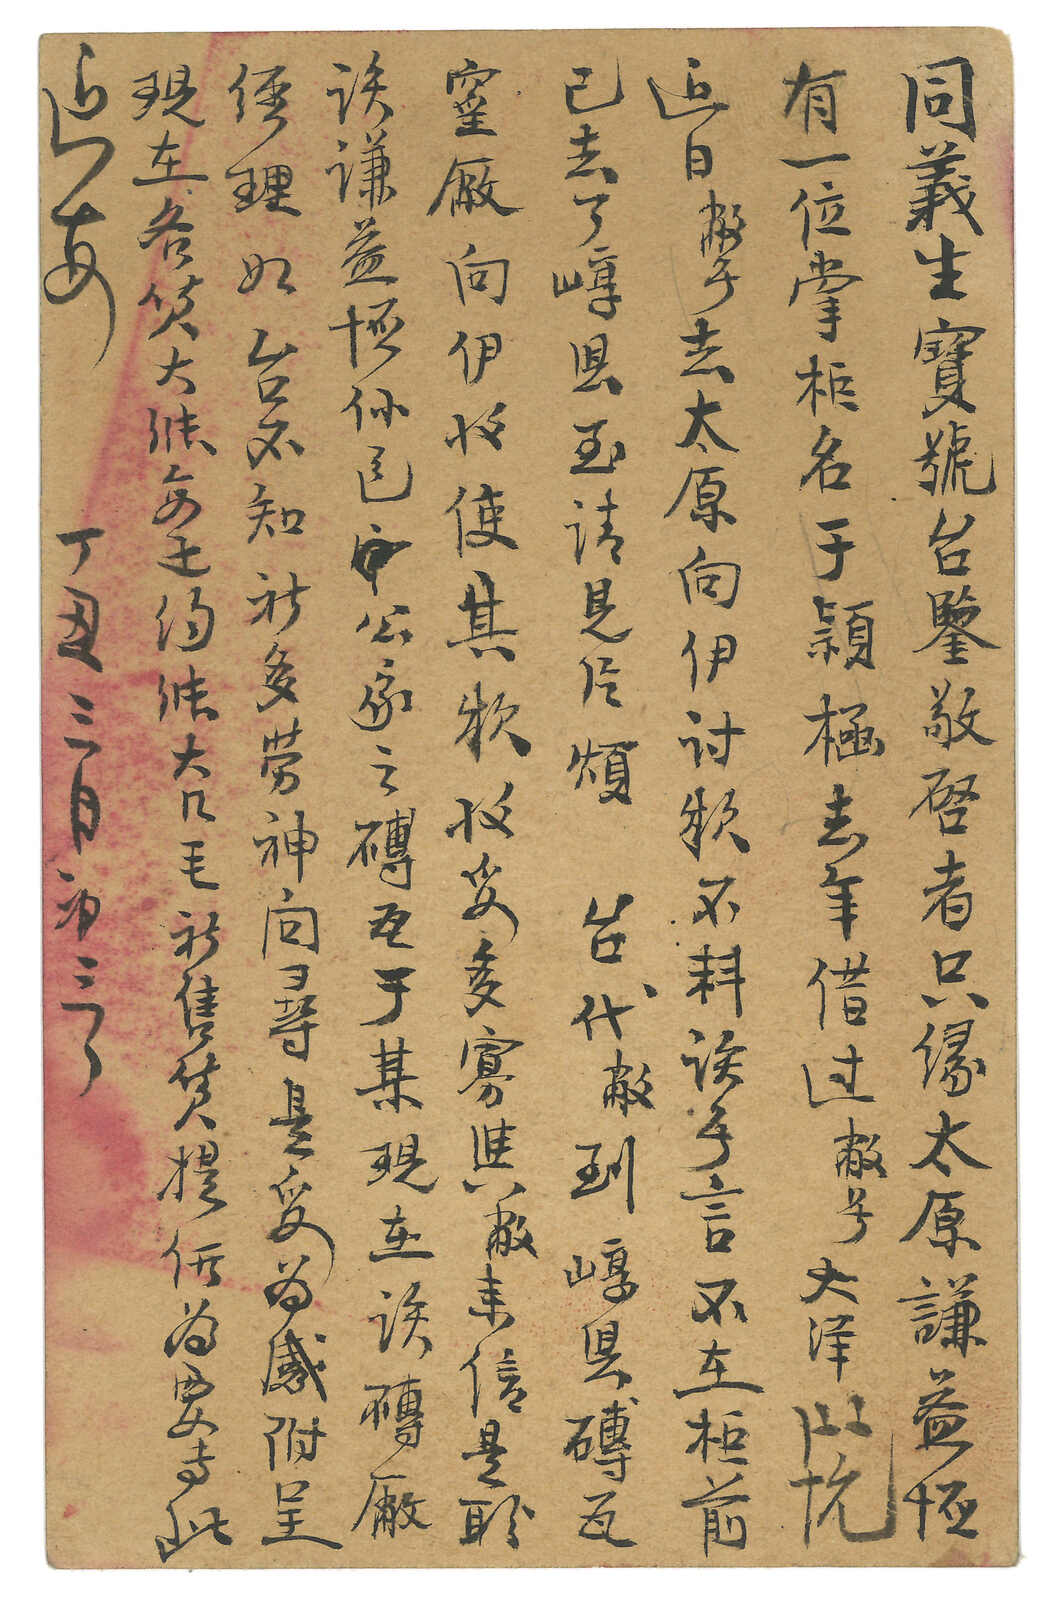 同義生寶號台鑒敬啓者只緣太原謙益恒
有一位掌柜名于穎極去年借过敝号大洋
近日敝号去太原向伊討欵不料该号言不在柜前
已去了崞县至请見片煩 台代敝到崞县磚瓦
窰廠向伊收使其欵收妥多寡與敝来信是盼
该谦益恒係已 公家之磚瓦于某現在该磚廠
經理如台不知祈多劳神向尋是妥为感附呈
現在各货大 大 毛祈售货提 为要专此
近安
丁丑三月初三日